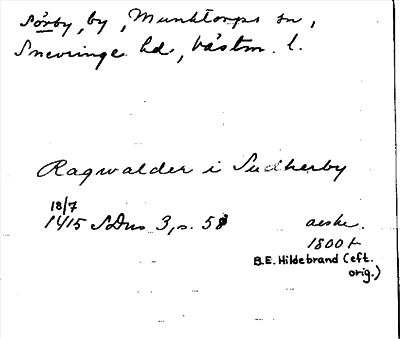 Sörby, by, Munktorps sn,
Snevringe hd, Västm. l.
Ragwalder i Sudherby
18/7
1415 SDns 3, s. 58
aeske.
1800 t
B.E. Hildebrand (eft.
orig.)